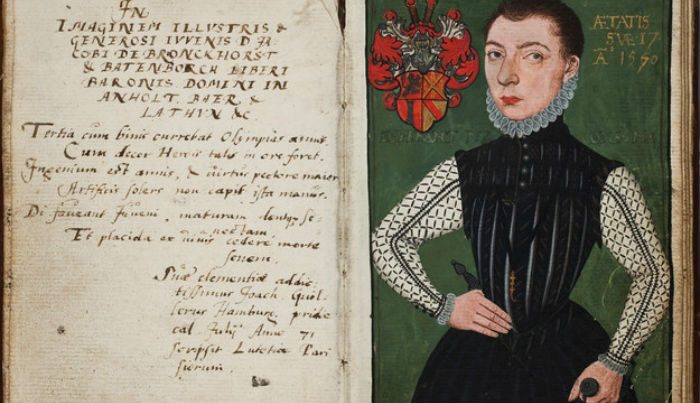 IN
IMAGINEM ILLUSTRIS &
GENEROSI IVVENIS D IA
COBI DE BRONCKHORST
& BATENBORCH LIBERI
BARONIS DOMINI IN
ANHOLT BAER &
LATHVN &c.
Tertia cum binis currebat Olympias annis,
Cum decor Herois talis in ore foret.
Ingenium est annis, & virtus pectore maior
Artificis solers non capit ista manus.
Di faveant Iuveni, maturam
Et placida ex cedere morte
senem.
Suae clementiae addic-
tissimus Joach.
Hamburg. pridie
cal. Julij Anno 71
scripsit Lutetiae Pari
siorum.
ÆTATIS
SVÆ 17
Aº 1570